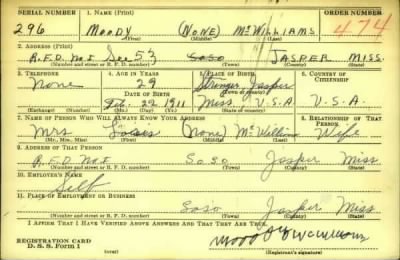 SERIAL NUMBER 1. NAME (Print) ORDER NUMBER
296 MOODY (NONE) McWILLIAMS 474
(First) (Middle) (Last)
2. ADDRESS (Print)
R.F.D. No I Sec 53 SOSO JASPER MISS.
(Number and street or R. F. D. number) (Town) (County) (State)
3. TELEPHONE 4. AGE IN YEARS 5. PLACE OF BIRTH 6. COUNTRY OF CITIZENSHIP
None 29 Stringer, Jasper
DATE OF BIRTH
Feb. 22 1911 Miss. U.S.A U.S.A.
(Exchange) (Number) (Mo.) (Day) (Yr.) (State or country)
7. NAME OF PERSON WHO WILL ALWAYS KNOW YOUR ADDRESS 8. RELATIONSHIP OF THAT PERSON
Mrs (None) Wife
(Mr., Mrs., Miss) (First) (Middle) (Last)
9. ADDRESS OF THAT PERSON
R.F.D No I Soso Jasper Miss
(Number and street or R. F. D. number) (Town) (County) (State)
10. EMPLOYER'S NAME
Self
11. PLACE OF EMPLOYMENT OR BUSINESS
Soso Jasper Miss
(Number and street or R. F. D. number) (Town) (County) (State)
I AFFIRM THAT I HAVE VERIFIED ABOVE ANSWERS AND THAT THEY ARE TRUE.
REGISTRATION CARD
D. S. S. Form 1 (Registrant's signature)